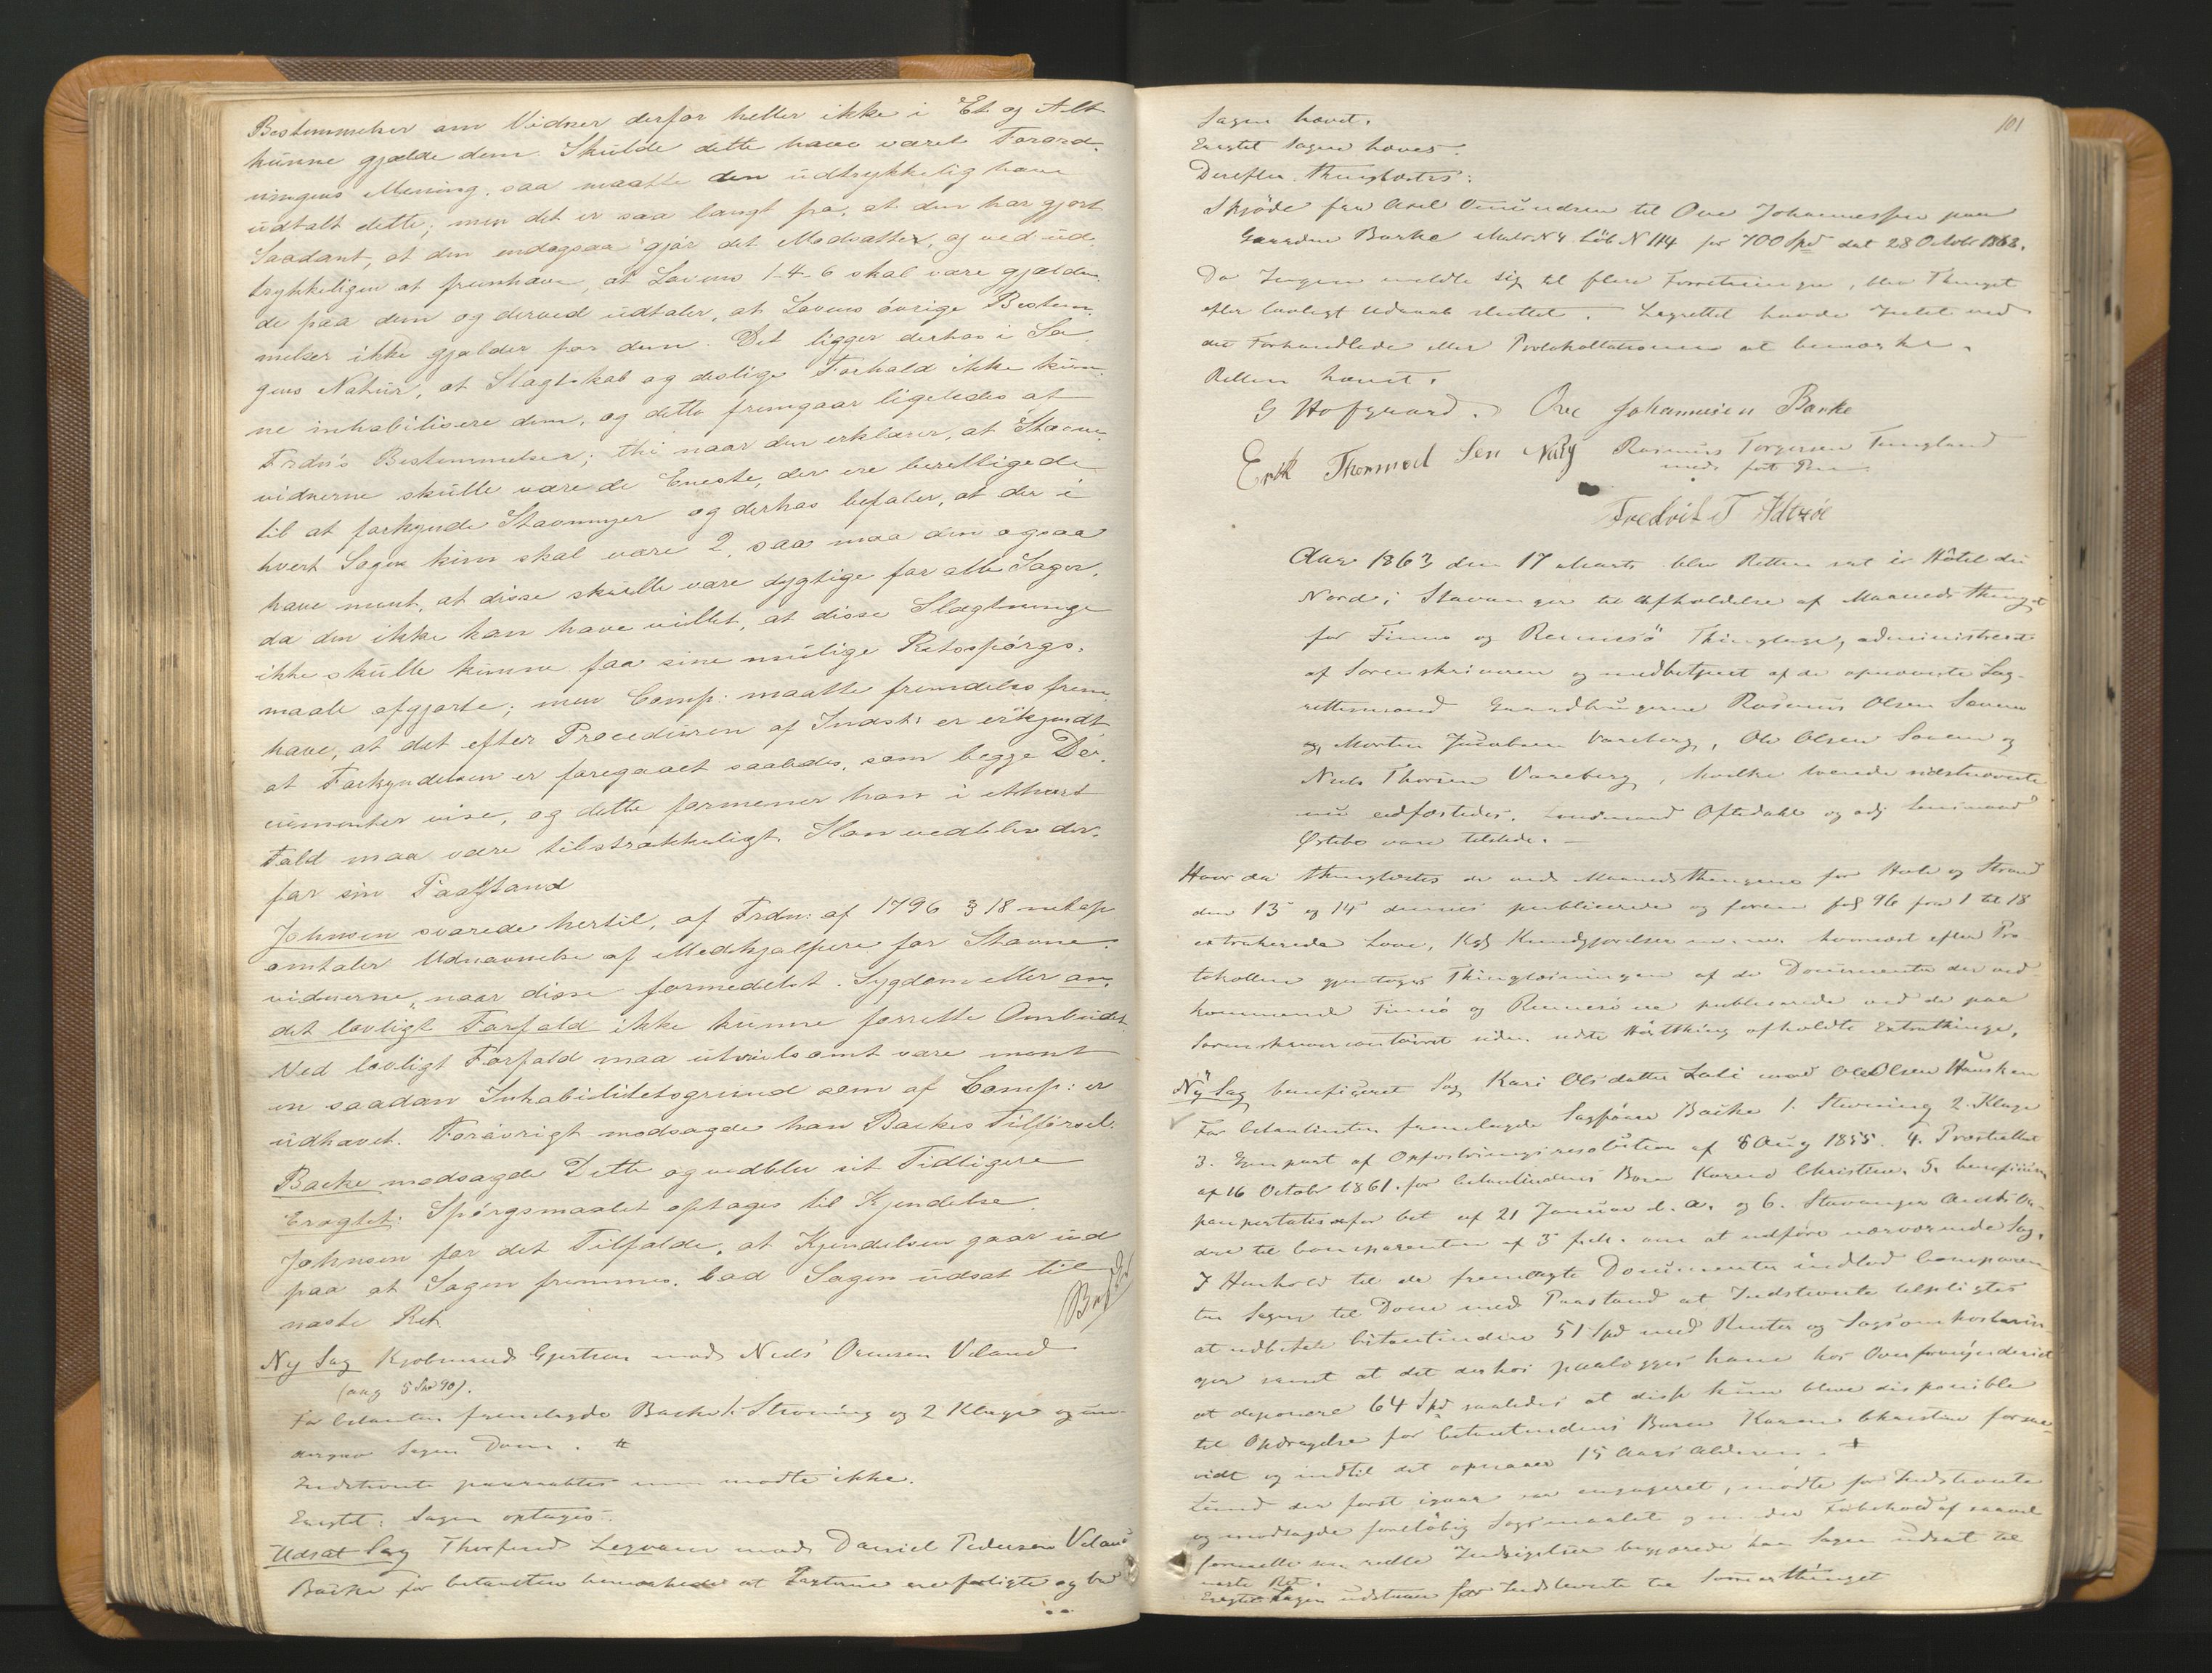 Bestemmelser om Vidner derfor heller ikke i Et og Alt
kunne gjælde dem. Skulde dette have været Forord-
ningens Mening, saa maatte den udtrykkelig have
udtalt dette; men det er saa langt fra, at den har gjort
Saadant, at den endogsaa gjör det Modsatte, og ved ud-
trykkeligen at fremhæve, at Lovens 1-4-6 skal være gjælden-
de paa dem og derved udtaler, at Lovens övrige Bestem-
melser ikke gjælder for dem. Det ligger derhos i Sa-
gens Natur, at Slægtskab og deslige Forhold ikke kun-
ne inhabilisere dem, og dette fremgaar ligeledes af
Frdn's Bestemmelser; thi naar den erklærer, at Stævne-
vidnerne skulle være de Eneste, der ere berettigede
til at forkynde Stævninger og derhos befaler, at der i
hvert Sogn kun skal være 2, saa maa den ogsaa
have ment, at disse skulle være dygtige for alle Sager,
da den ikke kan have villet, at disse Slægtninge
ikke skulle kunne faa sine mulige Retsspörgs-
maale afgjorte; men Comp: maatte fremdeles frem-
hæve, at det efter Proceduren af Indst: er erkjendt
at Forkyndelsen er foregaaet saaledes, som begge Do-
cumenter vise, og dette formener han i ethvert
Fald maa være tilstrækkeligt. Han vedblev der-
for sin Paastand
Johnsen svarede hertil, at Frdn: af 1796 § 18 netop
omtaler Udnævnelse af Medhjælpere for Stævne-
vidnerne, naar disse formedelst Sygdom eller an-
det lovligt Forfald ikke kunne forrette Ombudet.
Ved lovligt Forfald maa utvivlsomt være ment
en saadan Inhabilitetsgrund som af Comp: er
udhævet. Forövrigt modsagde han Backes Tilförsel.
Backe modsagde Dette og vedblev sit Tidligere
Eragtet: Spörgsmaalet optages til Kjendelse.
Johnsen for det Tilfælde, at Kjendelsen gaar ud
paa at Sagen fremmes, bad Sagen udsat til
næste Ret.
Ny Sag Kjobmand Gjertsen mod Niels Omunsen Veland
(aug 5 90).
For Citanten fremlagde Backe 1 Stevning og 2 Klage og un-
dergav Sagen Dom.
Indstevnte paaraabtes men mødte ikke.
Eragtet: Sagen optages.
Udsat Sag Thorfind mod Daniel Pedersen Veland
Backe for Citanten bemærkede at Parterne ere forligte og bad
101
Sagen hævet.
Eragtet Sagen hæves.
Derefter thinglæstes:
Skjöde fra Axel Omundsen til Ove Johannessen paa
Gaarden Barke Matr N 4 Löb N 114 for 700 Spd dat 28 Octobr 1862.
Da Ingen meldte sig til flere Forretninger, blev Thinget
efter lovligt Udraab sluttet. Lagrettet havde Intet ved
det Forhandlede eller Protokollationen at bemærke.
Retten hævet.
G Hofgaard. Ove Johannesen Barke
Erik Thormod Sen Nag Rasmus Torgersen Tungland
med fört Pen
Fredrik T Idsøe
Aar 1863 den 17 Marts blev Retten sat i Hôtel du
Nord i Stavanger til Afholdelse af Maanedsthinget
for Finnö og Rennesö Thinglage, administreret
af Sorenskriveren og medbetjent af de opnævnte Lag-
rettemænd Gaardbrugerne Rasmus Olsen
og Morten Jacobsen Vareberg, Ole Olsen og
Niels Thorsen Vareberg, hvilke tvende sidstnævnte
nu eedfæstedes. Lensmand Oftedahl og adj Lensmand
Østebø vare tilstede.
Hvor da thinglæstes de ved Maanedsthingene for Hole og Strand
den 13 og 14 dennes publicerede og foran fol 96 fra 1 til 18
extraherede Love, Kgl Kundgjørelser m.m. hvornæst efter Pro-
tokollen gjentoges Thinglæsningen af de Documenter der ved-
kommende Finnö og Rennesö ere publicerede ved de paa
Sorenskrivercontoiret siden sidste Høstthing afholdte Extrathinge.
Ny Sag beneficeret Sag Kari Olsdatter mod Ole Olsen Hausken
For Citantinden fremlagde Sagförer Backe 1. Stevning 2 Klage
3. Gjenpart af Opfostringsresolution af 8 Aug 1855. 4. Præsteattest
af 16 Octobr 1861. for Citantindens Barn Karen Christine. 5. beneficium
paupertatis for Cit af 21 Januar d. A. og 6. Stavanger Amts Or-
dre til Comparenten af 3 feb. om at udføre nærværende Sag.
I Henhold til de fremlagte Documenter indlod Comparen-
ten Sagen til Dom med Paastand at Indstevnte tilpligtes
at udbetale Citantinden 51 Spd med Renter og Sagsomkostnin-
ger samt at det derhos paalægges ham hos Overformynderiet
at deponere 64 Spd saaledes at disse kunne blive disponible
til Opdragelse for Citantindens Barn Karen Christine forsaa-
vidt og indtil det opnaaer 15 Aars Alderen.
Lund der først igaar var engageret, mødte for Indstevnte
og modsagde foreløbig Søgsmaalet og under Forbehold af saavel
formelle som reelle Indsigelser begjærede han Sagen udsat til
næste Ret.
Eragtet Sagen udstaar for Indstevnte til Sommerthinget